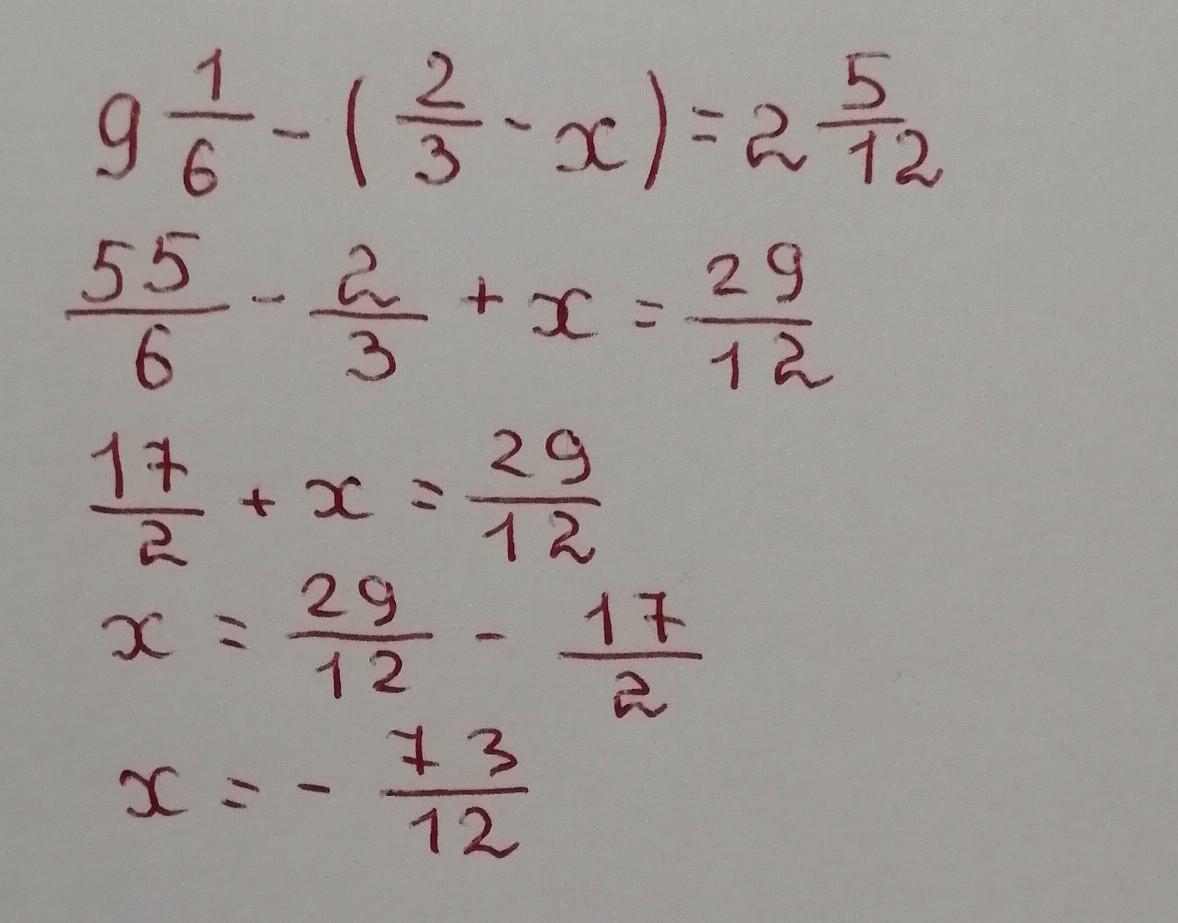 9 1/6 - (2/3 - x) = 2 5/12
55/6 - 2/3 + x = 29/12
17/2 + x = 29/12
x = 29/12 - 17/2
x = - 73/12